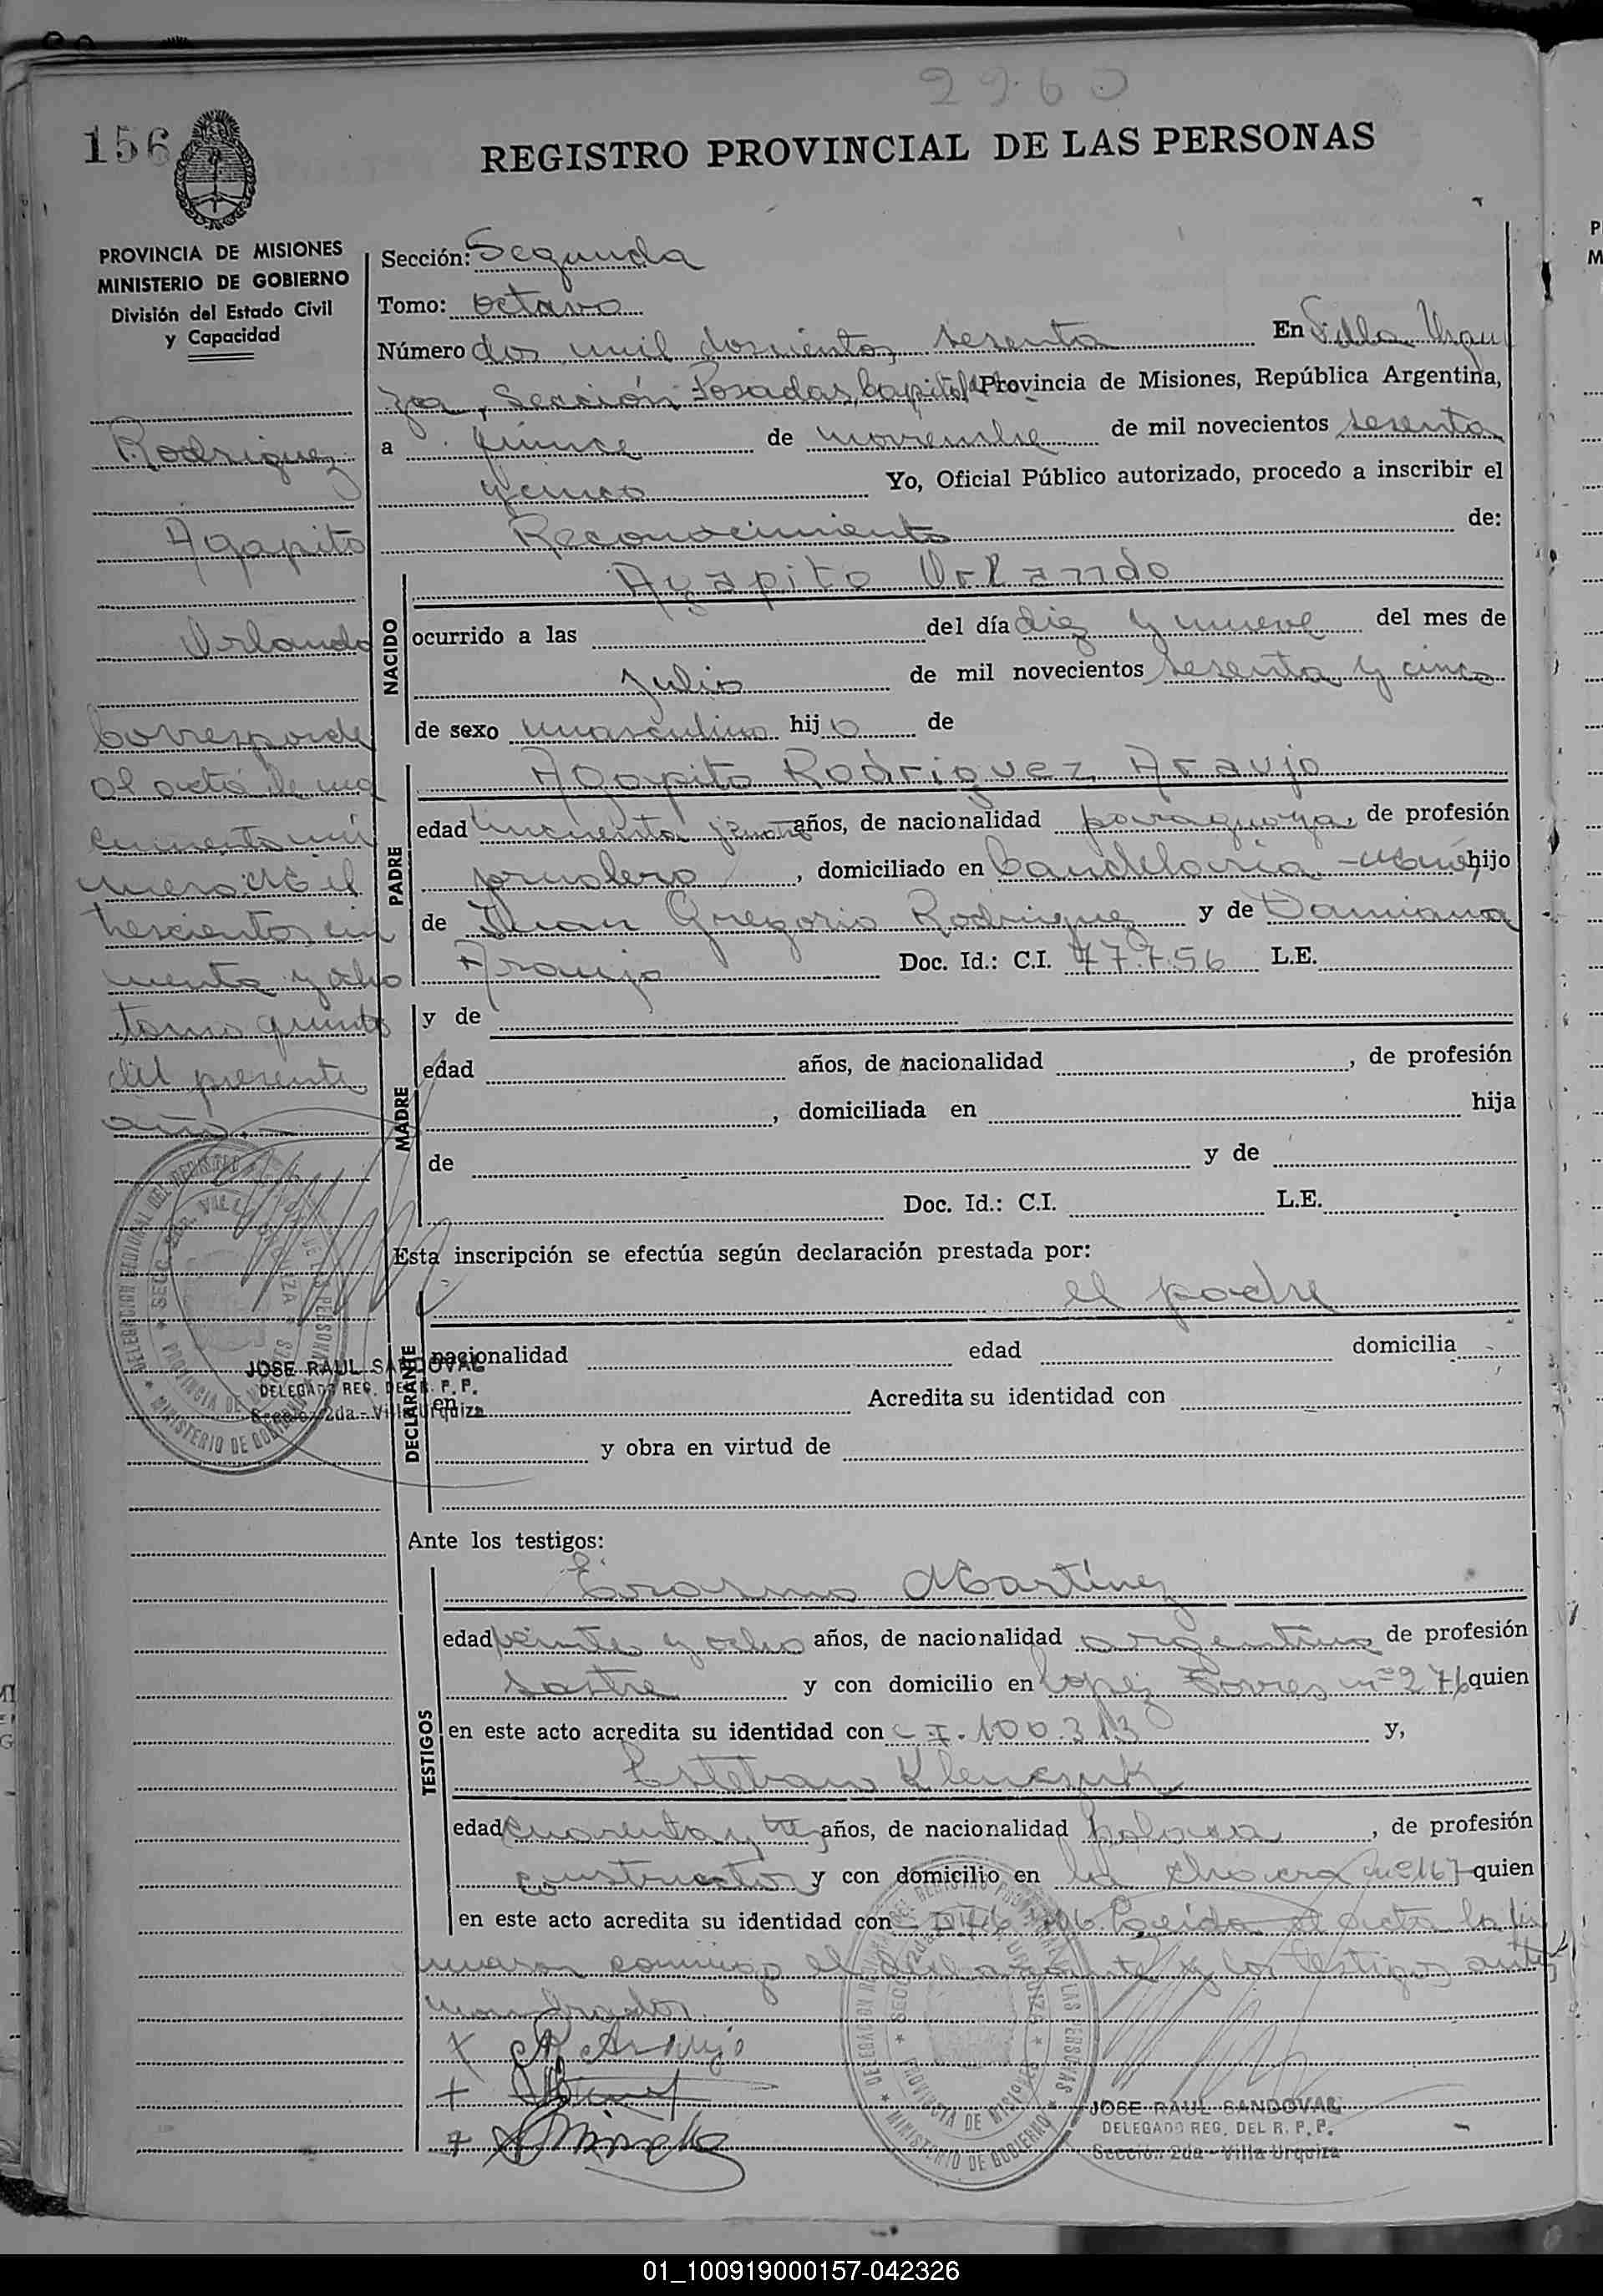 2260
156
REGISTRO PROVINCIAL DE LAS PERSONAS
PROVINCIA DE MISIONES
MINISTERIO DE GOBIERNO
División del Estado Civil
y Capacidad
Rodriguez
Agapito
Orlando
Corresponde
al acta de na
cimiento nú
mero mil
trescientos cin
cuenta y ocho
tomo quinto
del presente
año.-
JOSE RAUL SANDOVAL
DELEGADO REG. DEL R. P. P.
Sección 2da - Villa Urquiza
Sección: Segunda
Tomo: octavo
Número dos mil doscientos sesenta En Villa Urqui
za, Sección Posadas, Capital Provincia de Misiones, República Argentina,
a quince de noviembre de mil novecientos sesenta
y cinco Yo, Oficial Público autorizado, procedo a inscribir el
Reconocimiento de:
NACIDO
Agapito Orlando
ocurrido a las del día diez y nueve del mes de
Julio de mil novecientos sesenta y cinco
de sexo masculino hijo de
PADRE
Agapito Rodriguez Araujo
edad cincuenta años, de nacionalidad paraguaya, de profesión
jornalero, domiciliado en Candelaria - hijo
de Juan Gregorio Rodriguez y de Damiana
Araujo Doc. Id.: C.I. 77.756 L.E.
MADRE
y de
edad años, de nacionalidad , de profesión
, domiciliada en hija
de y de
Doc. Id.: C.I. L.E.
Esta inscripción se efectúa según declaración prestada por:
el padre
DECLARANTE
nacionalidad edad domicilia
en Acredita su identidad con
y obra en virtud de
Ante los testigos:
TESTIGOS
Erasmo Martínez
edad veinte y ocho años, de nacionalidad argentina de profesión
sastre y con domicilio en Lopez Torres nº 276 quien
en este acto acredita su identidad con C.I. 100.313 y,
Esteban Klenczuk
edad cuarenta y tres años, de nacionalidad Polaca, de profesión
constructor y con domicilio en La Chacra nº 167 quien
en este acto acredita su identidad con Leida el acta la fir
maron conmigo el declarante y los testigos antes
nombrados.
A Araujo
JOSE RAUL SANDOVAL
DELEGADO REG. DEL R. P. P.
Sección 2da - Villa Urquiza
01_100919000157-042326